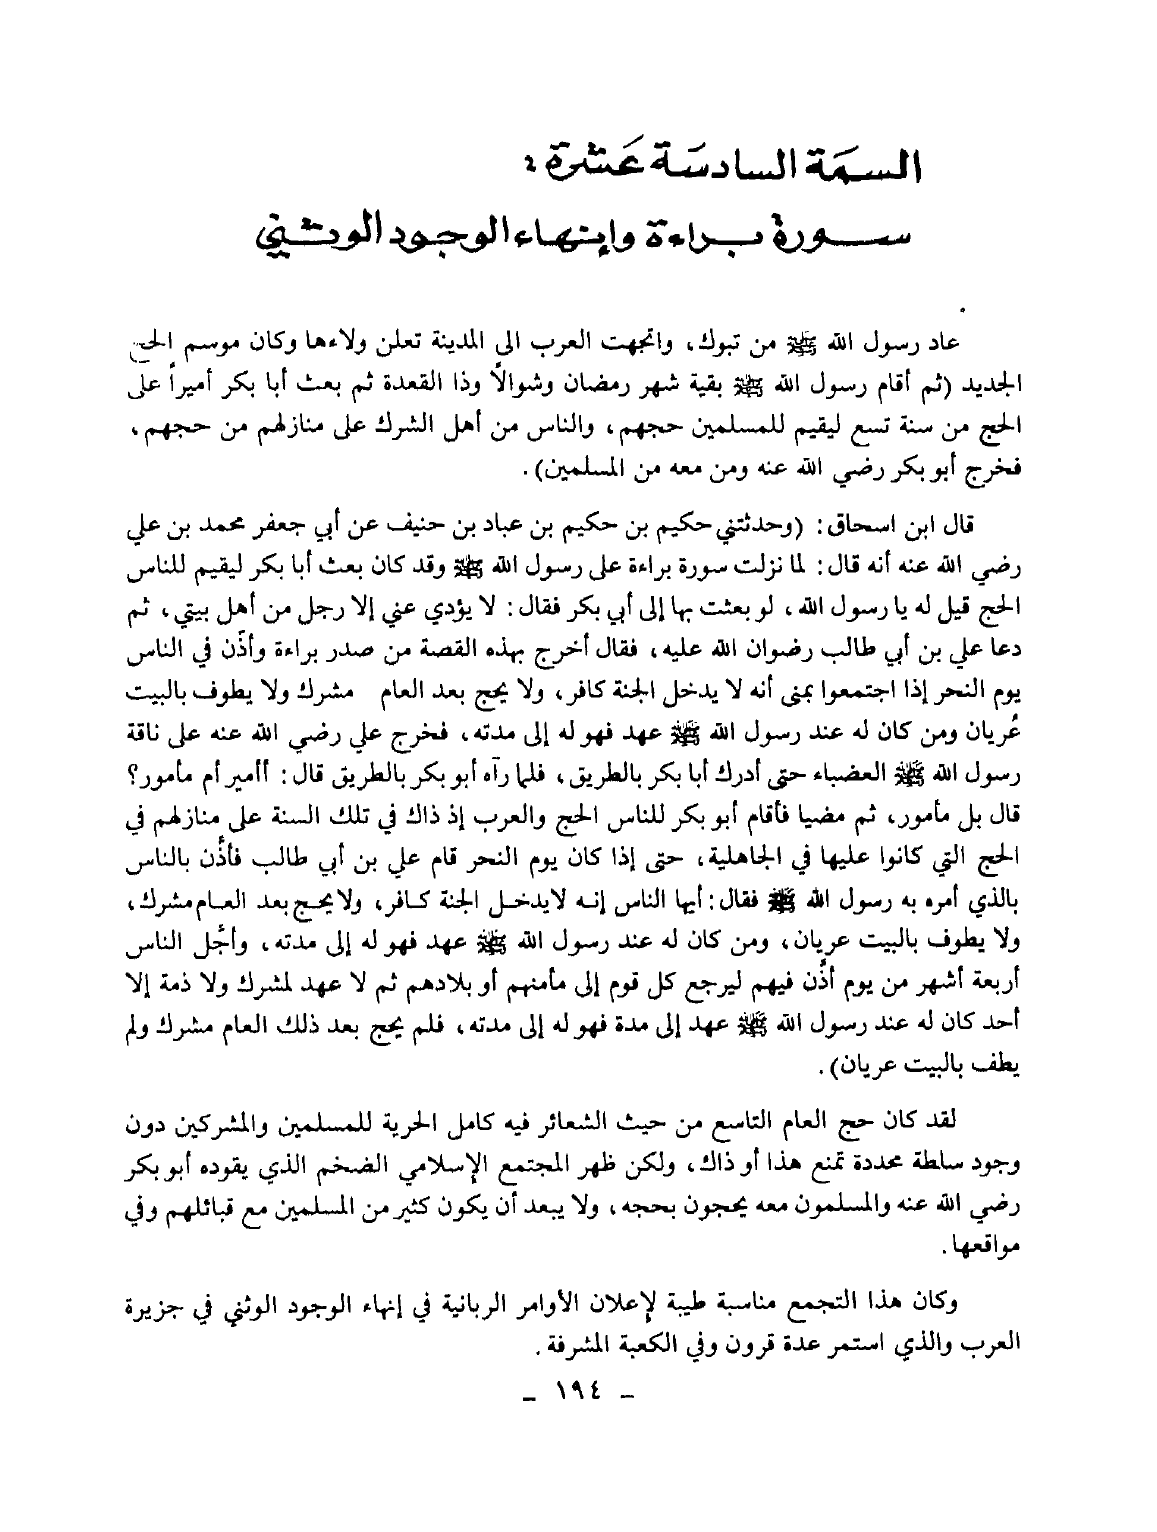 السمَة السادسَة عَشرة :
سورة براءة وإنهاء الوجود الوثني
عاد رسول الله ﷺ من تبوك، واتجهت العرب الى المدينة تعلن ولاءها وكان موسم الحج
الجديد (ثم أقام رسول الله ﷺ بقية شهر رمضان وشوالاً وذا القعدة ثم بعث أبا بكر أميراً على
الحج من سنة تسع ليقيم للمسلمين حجهم، والناس من أهل الشرك على منازلهم من حجهم،
فخرج أبو بكر رضي الله عنه ومن معه من المسلمين).
قال ابن اسحاق: (وحدثتني حكيم بن حكيم بن عباد بن حنيف عن أبي جعفر محمد بن علي
رضي الله عنه أنه قال: لما نزلت سورة براءة على رسول الله ﷺ وقد كان بعث أبا بكر ليقيم للناس
الحج قيل له يا رسول الله، لو بعثت بها إلى أبي بكر فقال: لا يؤدي عني إلا رجل من أهل بيتي، ثم
دعا علي بن أبي طالب رضوان الله عليه، فقال أخرج بهذه القصة من صدر براءة وأذّن في الناس
يوم النحر إذا اجتمعوا بمنى أنه لا يدخل الجنة كافر، ولا يحج بعد العام مشرك ولا يطوف بالبيت
عُريان ومن كان له عند رسول الله ﷺ عهد فهو له إلى مدته، فخرج علي رضي الله عنه على ناقة
رسول الله ﷺ العضباء حتى أدرك أبا بكر بالطريق، فلما رآه أبو بكر بالطريق قال: أأمير أم مأمور؟
قال بل مأمور، ثم مضيا فأقام أبو بكر للناس الحج والعرب إذ ذاك في تلك السنة على منازلهم في
الحج التي كانوا عليها في الجاهلية، حتى إذا كان يوم النحر قام علي بن أبي طالب فأذَّن بالناس
بالذي أمره به رسول الله ﷺ فقال: أيها الناس إنه لايدخل الجنة كافر، ولا يحج بعد العام مشرك،
ولا يطوف بالبيت عريان، ومن كان له عند رسول الله ﷺ عهد فهو له إلى مدته، وأجَّل الناس
أربعة أشهر من يوم أذَّن فيهم ليرجع كل قوم إلى مأمنهم أو بلادهم ثم لا عهد لمشرك ولا ذمة إلا
أحد كان له عند رسول الله ﷺ عهد إلى مدة فهو له إلى مدته، فلم يحج بعد ذلك العام مشرك ولم
يطف بالبيت عريان).
لقد كان حج العام التاسع من حيث الشعائر فيه كامل الحرية للمسلمين والمشركين دون
وجود سلطة محددة تمنع هذا أو ذاك، ولكن ظهر المجتمع الإسلامي الضخم الذي يقوده أبو بكر
رضي الله عنه والمسلمون معه يحجون بحجه، ولا يبعد أن يكون كثير من المسلمين مع قبائلهم وفي
مواقعها.
وكان هذا التجمع مناسبة طيبة لإعلان الأوامر الربانية في إنهاء الوجود الوثني في جزيرة
العرب والذي استمر عدة قرون وفي الكعبة المشرفة.
– ١٩٤ –